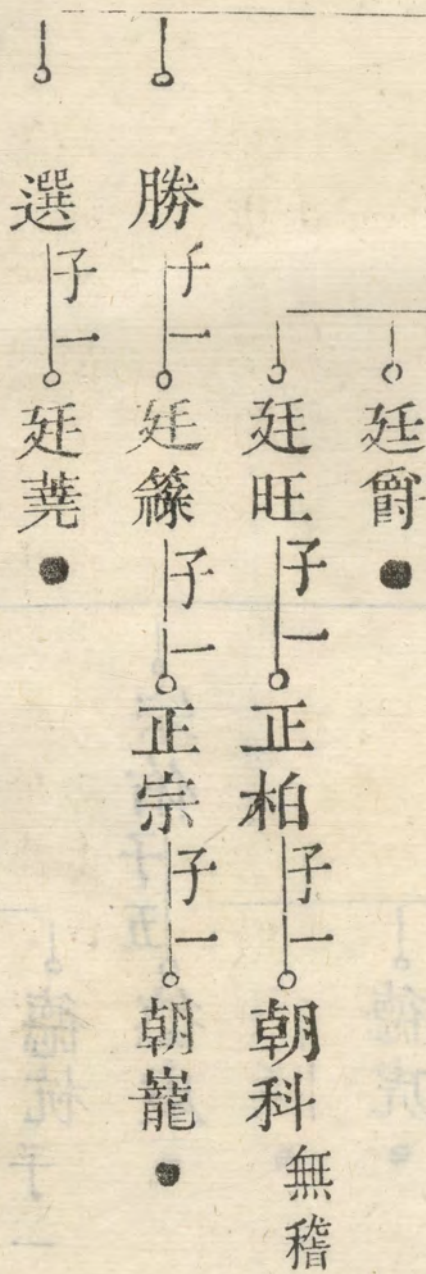 廷爵●
廷旺子一正柏子一朝科無稽
勝子一廷篨子一正宗子一朝巃●
選子一廷蕘●